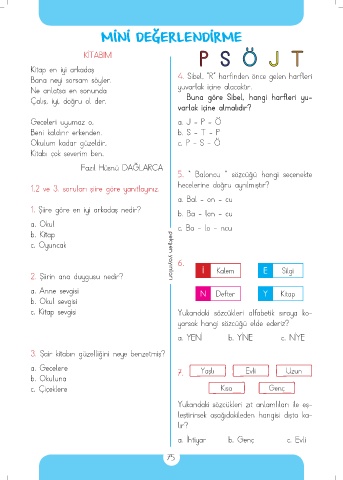 MİNİ DEĞERLENDİRME
KİTABIM
Kitap en iyi arkadaş
Bana neyi sorsam söyler.
Ne anlatsa en sonunda
Çalış, iyi, doğru ol der.
Geceleri uyumaz o,
Beni kaldırır erkenden.
Okulum kadar güzeldir,
Kitabı çok severim ben.
Fazıl Hüsnü DAĞLARCA
1,2 ve 3. soruları şiire göre yanıtlayınız.
1. Şiire göre en iyi arkadaş nedir?
a. Okul
b. Kitap
c. Oyuncak
2. Şiirin ana duygusu nedir?
a. Anne sevgisi
b. Okul sevgisi
c. Kitap sevgisi
3. Şair kitabın güzelliğini neye benzetmiş?
a. Gecelere
b. Okuluna
c. Çiçeklere
pelışen yayınları
P S Ö J T
4. Sibel, "R" harfinden önce gelen harfleri
yuvarlak içine alacaktır.
Buna göre Sibel, hangi harfleri yu-
varlak içine almalıdır?
a. J - P - Ö
b. S - T - P
c. P - S - Ö
5. " Baloncu " sözcüğü hangi seçenekte
hecelerine doğru ayrılmıştır?
a. Bal - on - cu
b. Ba - lon - cu
c. Ba - lo - ncu
6.
İ Kalem E Silgi
N Defter Y Kitap
Yukarıdaki sözcükleri alfabetik sıraya ko-
yarsak hangi sözcüğü elde ederiz?
a. YENİ b. YİNE c. NİYE
7. Yaşlı Evli Uzun
Kısa Genç
Yukarıdaki sözcükleri zıt anlamlıları ile eş-
leştirirsek aşağıdakilerden hangisi dışta ka-
lır?
a. İhtiyar b. Genç c. Evli
75